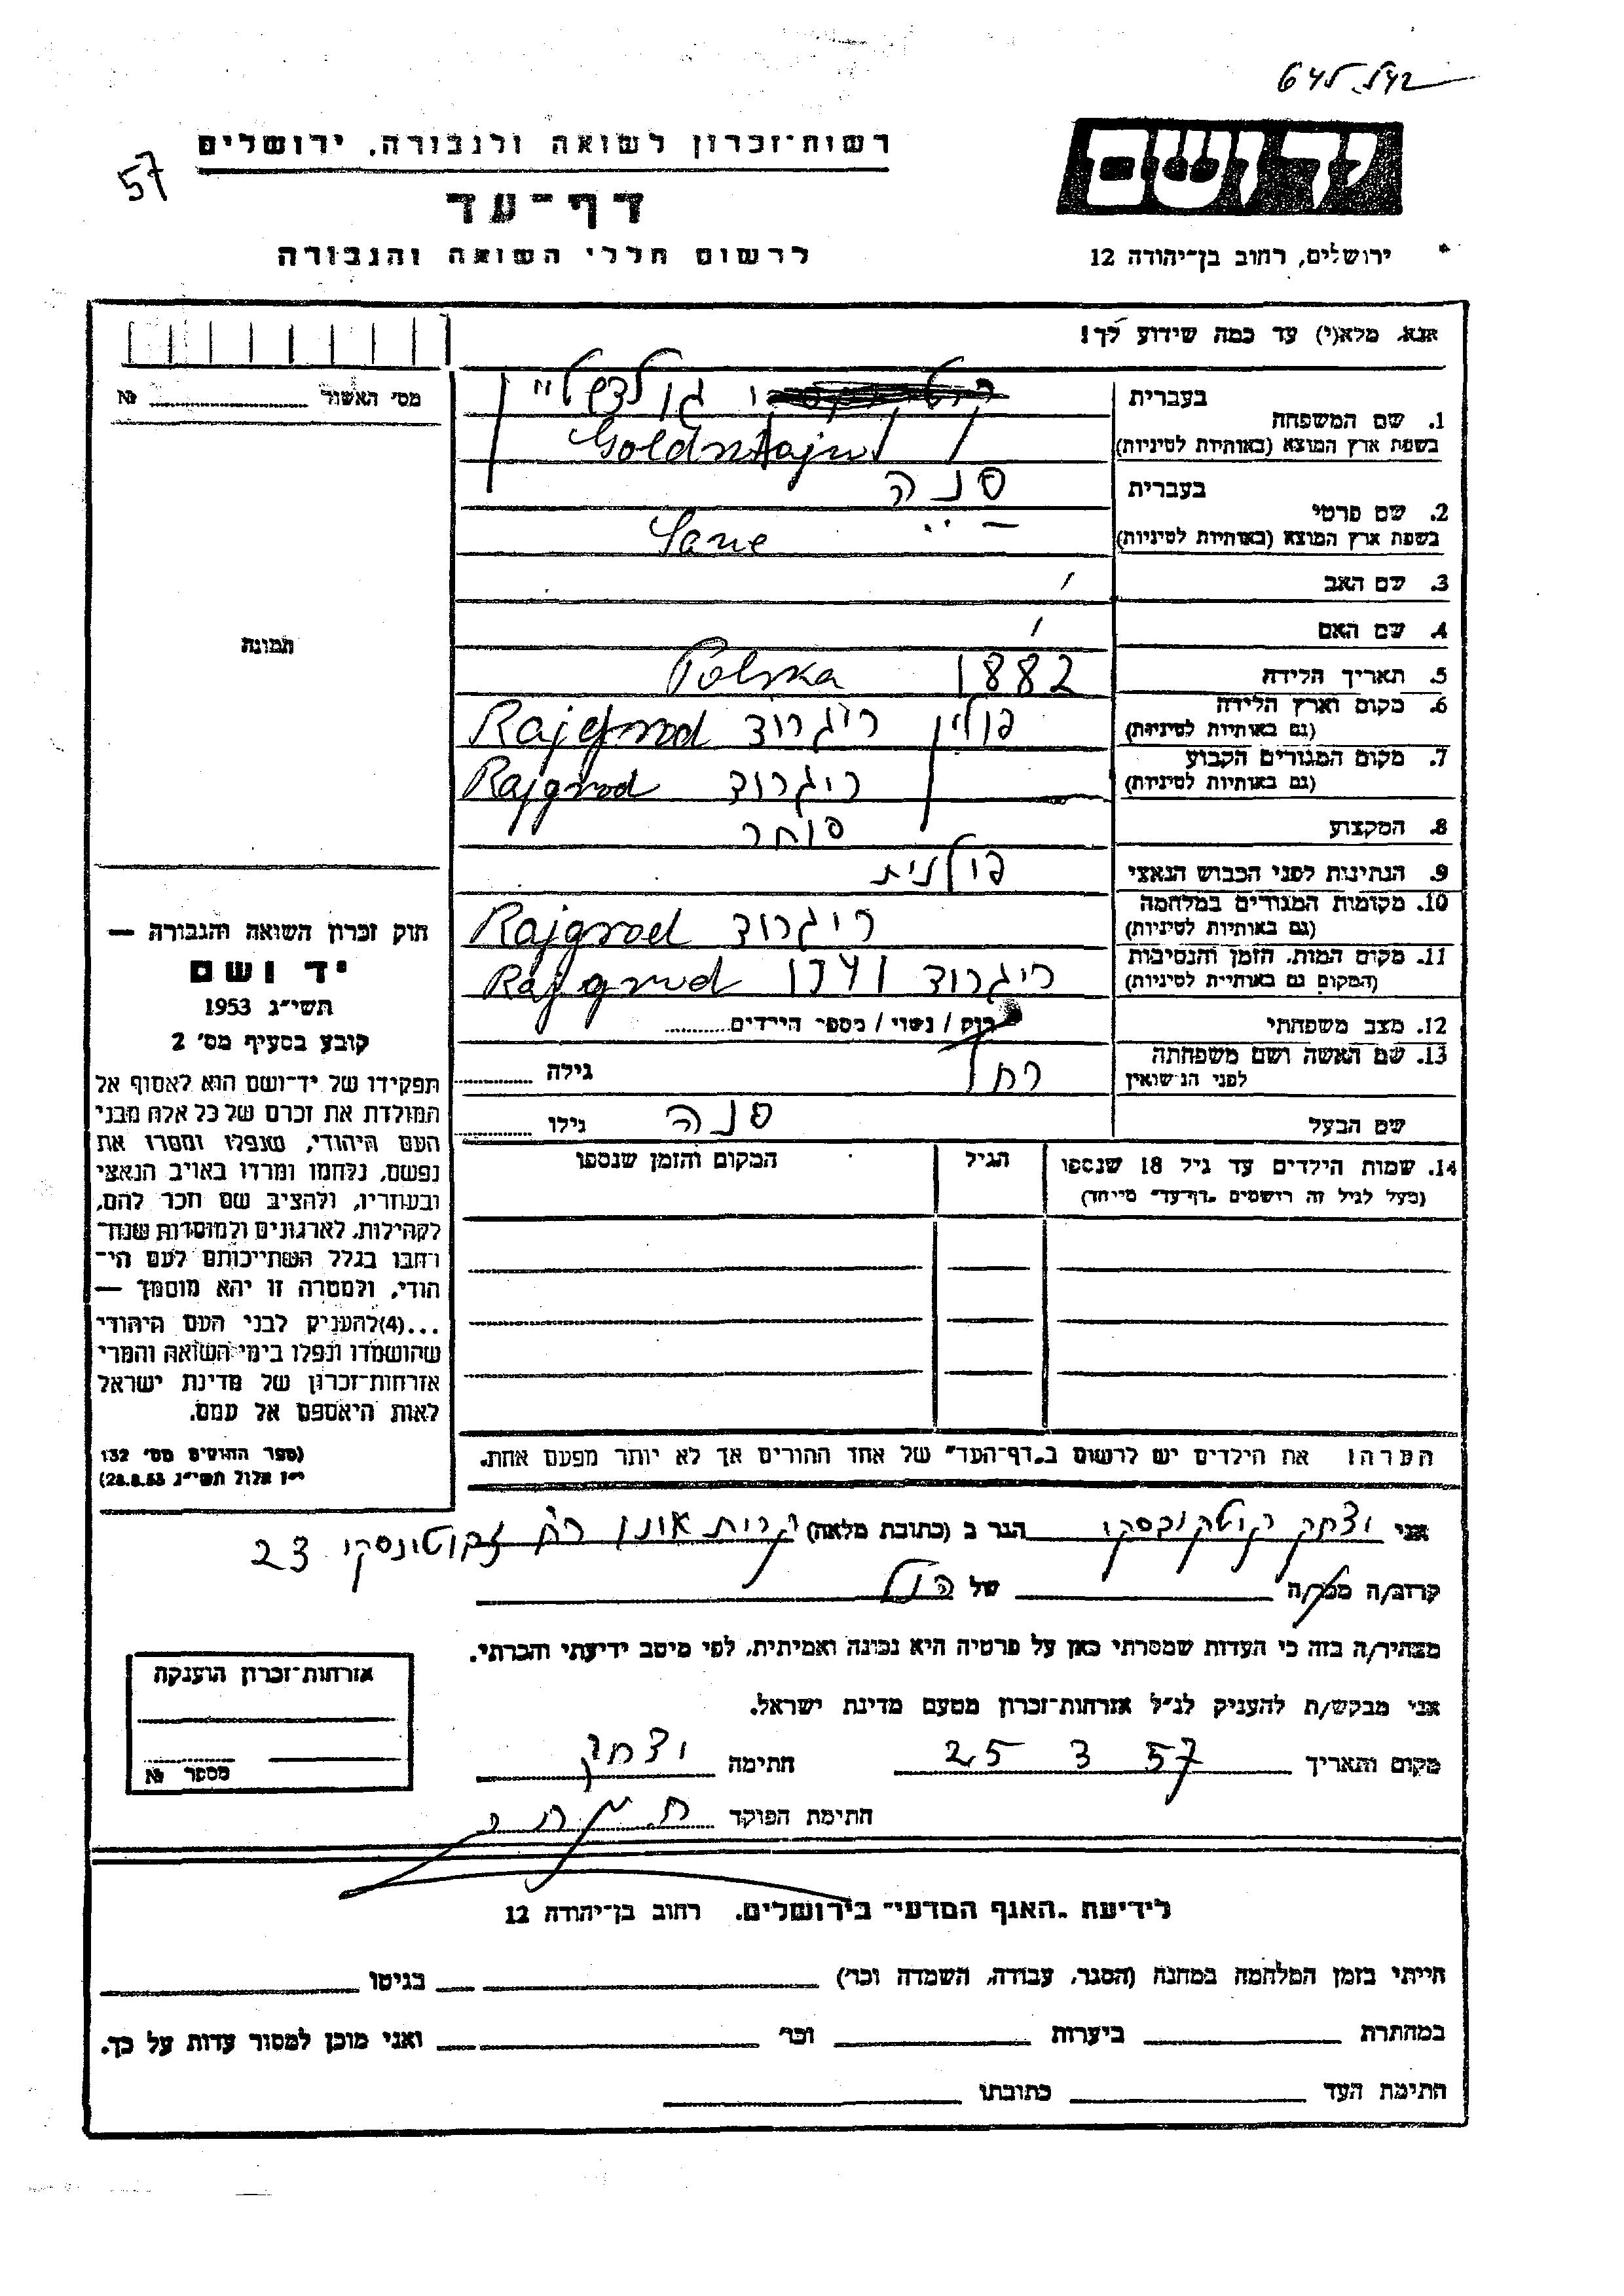 645
57
רשות־זכרון לשואה ולגבורה, ירושלים
דף־עד
לרשום חללי השואה והגבורה
יד ושם
ירושלים, רחוב בן־יהודה 12
אנא, מלא(י) עד כמה שידוע לך!
מס' האשור № 
1. שם המשפחה
בעברית
בשפת ארץ המוצא (באותיות לטיניות)
Goldsztajn
2. שם פרטי
בעברית סנה
בשפת ארץ המוצא (באותיות לטיניות) Sane
3. שם האב
4. שם האם
תמונה
5. תאריך הלידה 1882 Polska
6. מקום וארץ הלידה
(גם באותיות לטיניות)
פולין ריגרוד Rajgrod
7. מקום המגורים הקבוע
(גם באותיות לטיניות)
ריגרוד Rajgrod
8. המקצוע סוחר
9. הנתינות לפני הכבוש הנאצי פולנית
10. מקומות המגורים במלחמה
(גם באותיות לטיניות)
ריגרוד Rajgrod
11. מקום המות, הזמן והנסיבות
(המקום גם באותיות לטיניות)
ריגרוד 1941 Rajgrod
12. מצב משפחתי רוק / נשוי / מספר הילדים
13. שם האשה ושם משפחתה
לפני הנישואין
רחל גילה
שם הבעל סנה גילו
14. שמות הילדים עד גיל 18 שנספו
(מעל לגיל זה רושמים "דף־עד" מיוחד)
הגיל
המקום והזמן שנספו
חוק זכרון השואה והגבורה —
יד ושם
תשי"ג 1953
קובע בסעיף מס' 2
תפקידו של יד־ושם הוא לאסוף אל
המולדת את זכרם של כל אלה מבני
העם היהודי, שנפלו ומסרו את
נפשם, נלחמו ומרדו באויב הנאצי
ובעוזריו, ולהציב שם וזכר להם,
לקהילות, לארגונים ולמוסדות שנח־
רבו בגלל השתייכותם לעם הי־
הודי, ולמטרה זו יהא מוסמך —
...(4) להעניק לבני העם היהודי
שהושמדו ונפלו בימי השואה והמרי
אזרחות־זכרון של מדינת ישראל
לאות היאספם אל עמם.
(ספר החוקים מס' 132
י"ז אלול תשי"ג 28.8.53)
הערה: את הילדים יש לרשום ב"דף־העד" של אחד ההורים אך לא יותר מפעם אחת.
אני יצחק קוטקובסקי הגר ב (כתובת מלאה) קרית אונו רח' ז'בוטינסקי 23
קרוב/ה מכר/ה של הנ"ל
מצהיר/ה בזה כי העדות שמסרתי כאן על פרטיה היא נכונה ואמיתית, לפי מיטב ידיעתי והכרתי.
אני מבקש/ת להעניק לנ"ל אזרחות־זכרון מטעם מדינת ישראל.
מקום ותאריך 25 3 57 חתימה יצחק
חתימת הפוקד
אזרחות־זכרון הוענקה
מספר №
לידיעת "האגף המדעי" בירושלים, רחוב בן־יהודה 12
הייתי בזמן המלחמה במחנה (הסגר, עבודה, השמדה וכו') בגיטו
במחתרת ביערות וכו' ואני מוכן למסור עדות על כך.
חתימת העד כתובתו